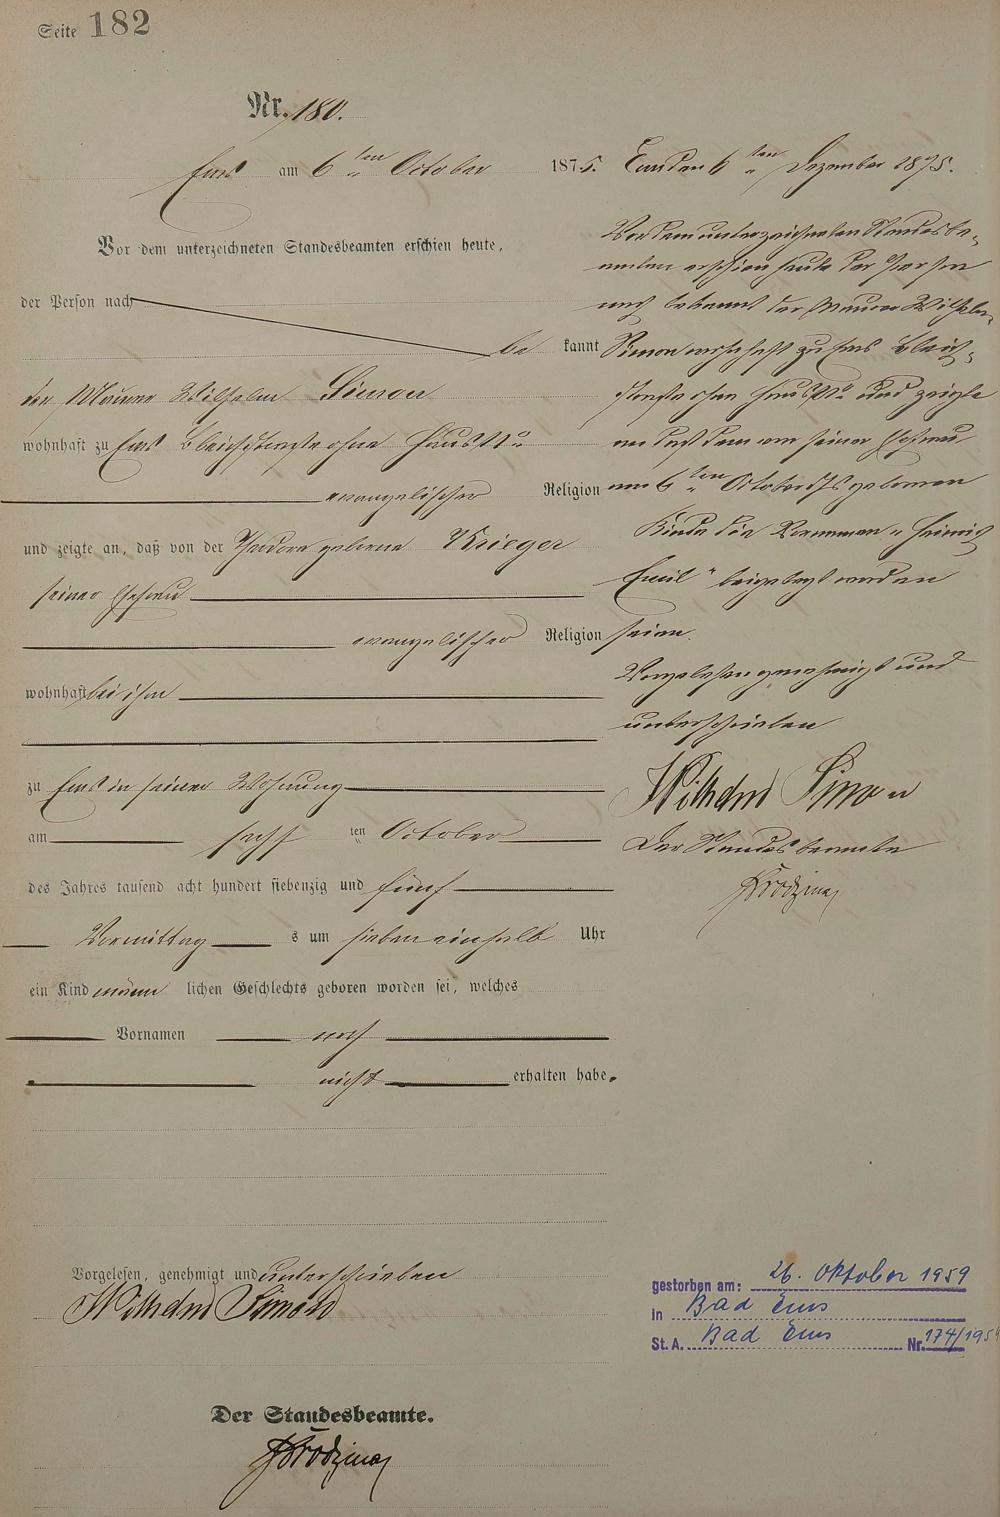 Seite 182
Nr. 180.
Ems am 6 ten October 1875.
Vor dem unterzeichneten Standesbeamten erschien heute,
der Person nach
be kannt
der Maurer Wilhelm Simon
wohnhaft zu Ems Bleichstraße ohne Haus No
evangelischer Religion
und zeigte an, daß von der Theodora geborene Krieger
seiner Ehefrau
evangelischer Religion
wohnhaft bei ihm
zu Ems in seiner Wohnung
am sechs ten October
des Jahres tausend acht hundert siebenzig und fünf
Vormittag s um sieben einhalb Uhr
ein Kind männ lichen Geschlechts geboren worden sei, welches
Vornamen noch
nicht erhalten habe.
Vorgelesen, genehmigt und unterschrieben
Wilhelm Simon
Der Standesbeamte.
Ems den 6 ten Dezember 1875.
Vor dem unterzeichneten Standesbe-
amten erschien heute der Person
nach bekannt der Maurer Wilhelm
Simon wohnhaft zu Ems Bleich-
straße ohne Haus No und zeigte
an daß dem von seiner Ehefrau
am 6 ten October d Js geborenen
Kinde die Vornamen „Heinrich
Emil" beigelegt worden
seien.
Vorgelesen genehmigt und
unterschrieben
Wilhelm Simon
Der Standesbeamte
gestorben am: 26. Oktober 1959
in Bad Ems
St. A. Bad Ems Nr. 174/1959